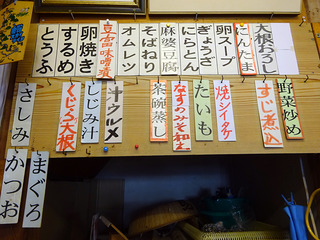 大根おろし
にんたま
卵スープ
ぎょうざ
にらとん
麻婆豆腐
そばねり
オムレツ
豆富味噌漬
卵焼き
するめ
とうふ
野菜炒め
すじ煮込
焼シイタケ
たいも
茶碗蒸し
汁ウルメ
しじみ汁
くじら大根
さしみ
まぐろ
かつお